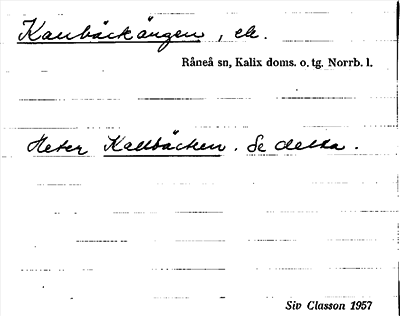 Kallbäckängen, ek.
Råneå sn, Kalix doms. o. tg. Norrb. l.
Heter Kallbäcken. Se detta.
Siv Classon 1957